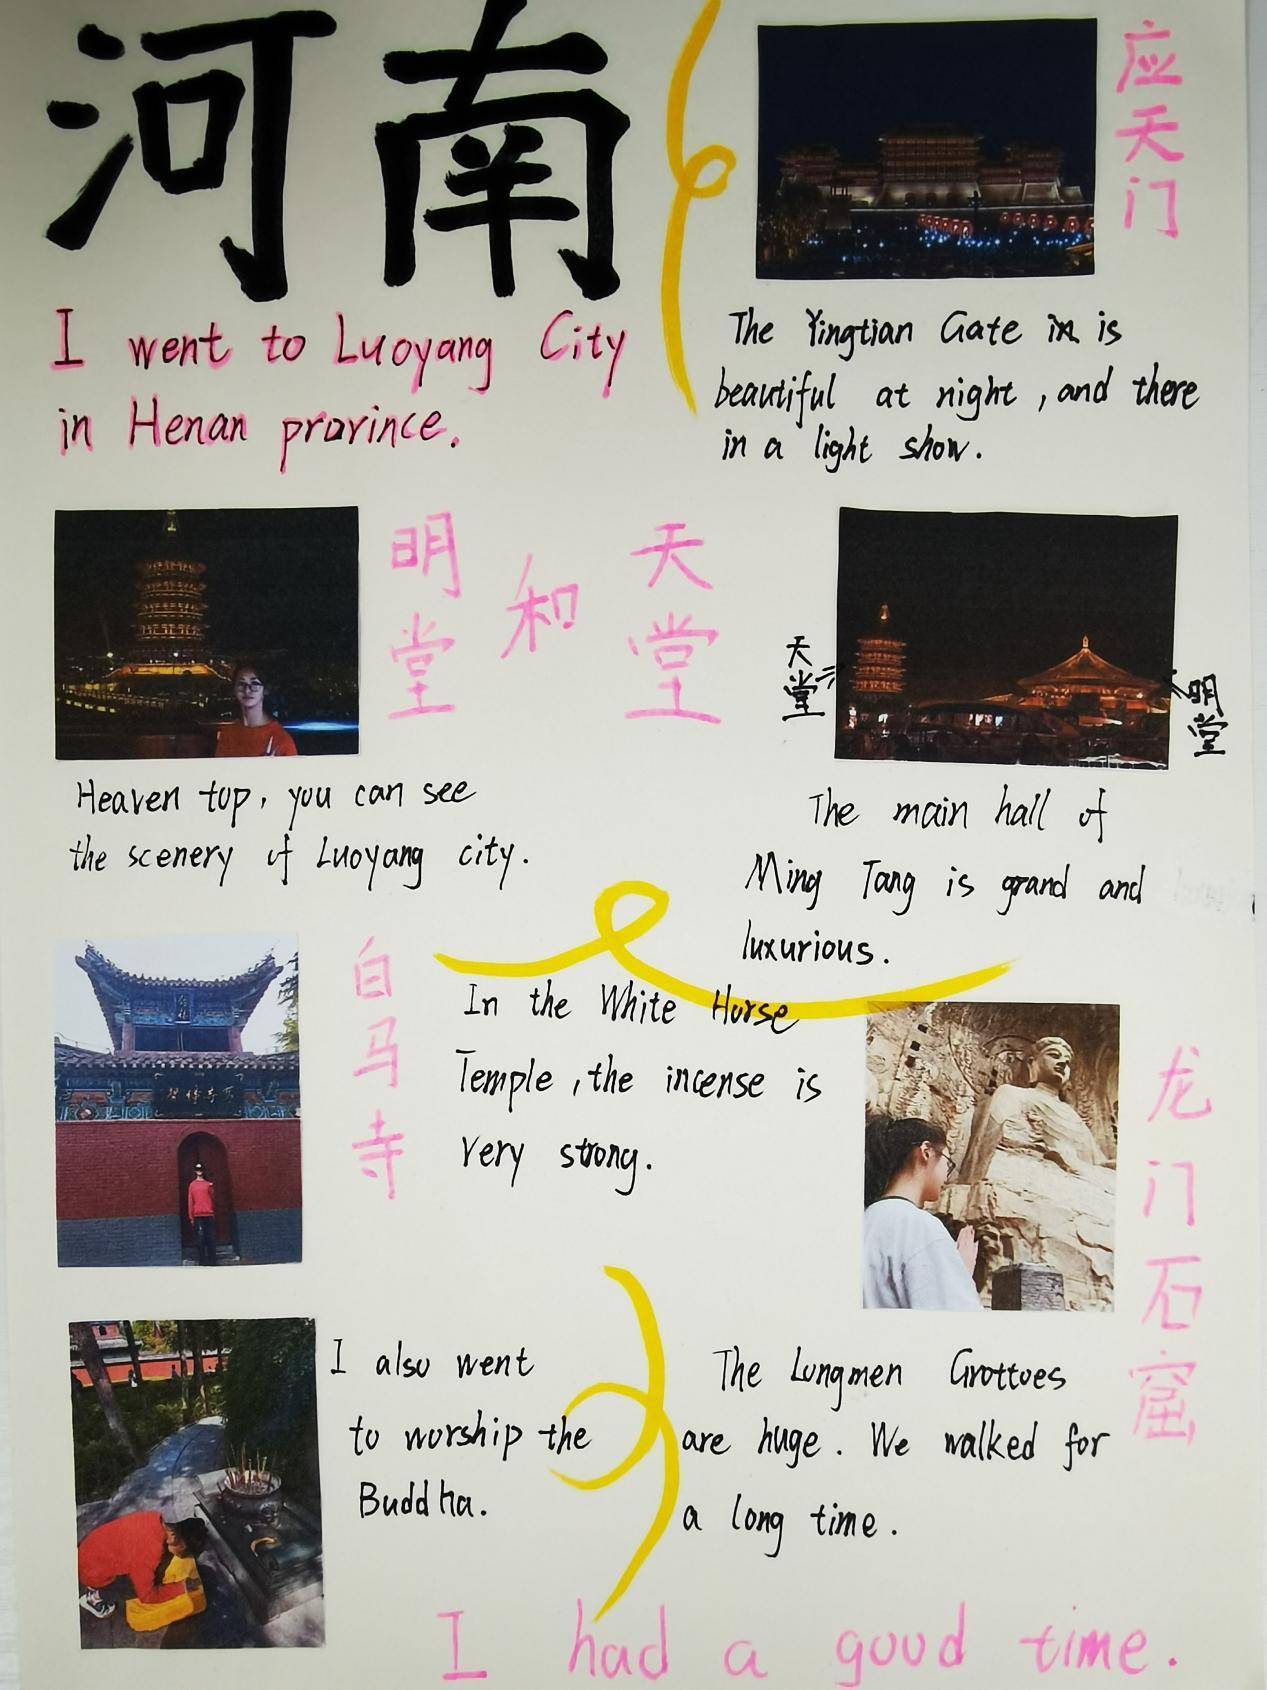 河南
I went to Luoyang City
in Henan province.
应天门
The Yingtian Gate in is
beautiful at night, and there
in a light show.
明堂
和
天堂
天堂
明堂
Heaven top, you can see
the scenery of Luoyang city.
The main hall of
Ming Tang is grand and
luxurious.
白马寺
In the White Horse
Temple, the incense is
very strong.
龙门石窟
I also went
to worship the
Buddha.
The Longmen Grottoes
are huge. We walked for
a long time.
I had a good time.